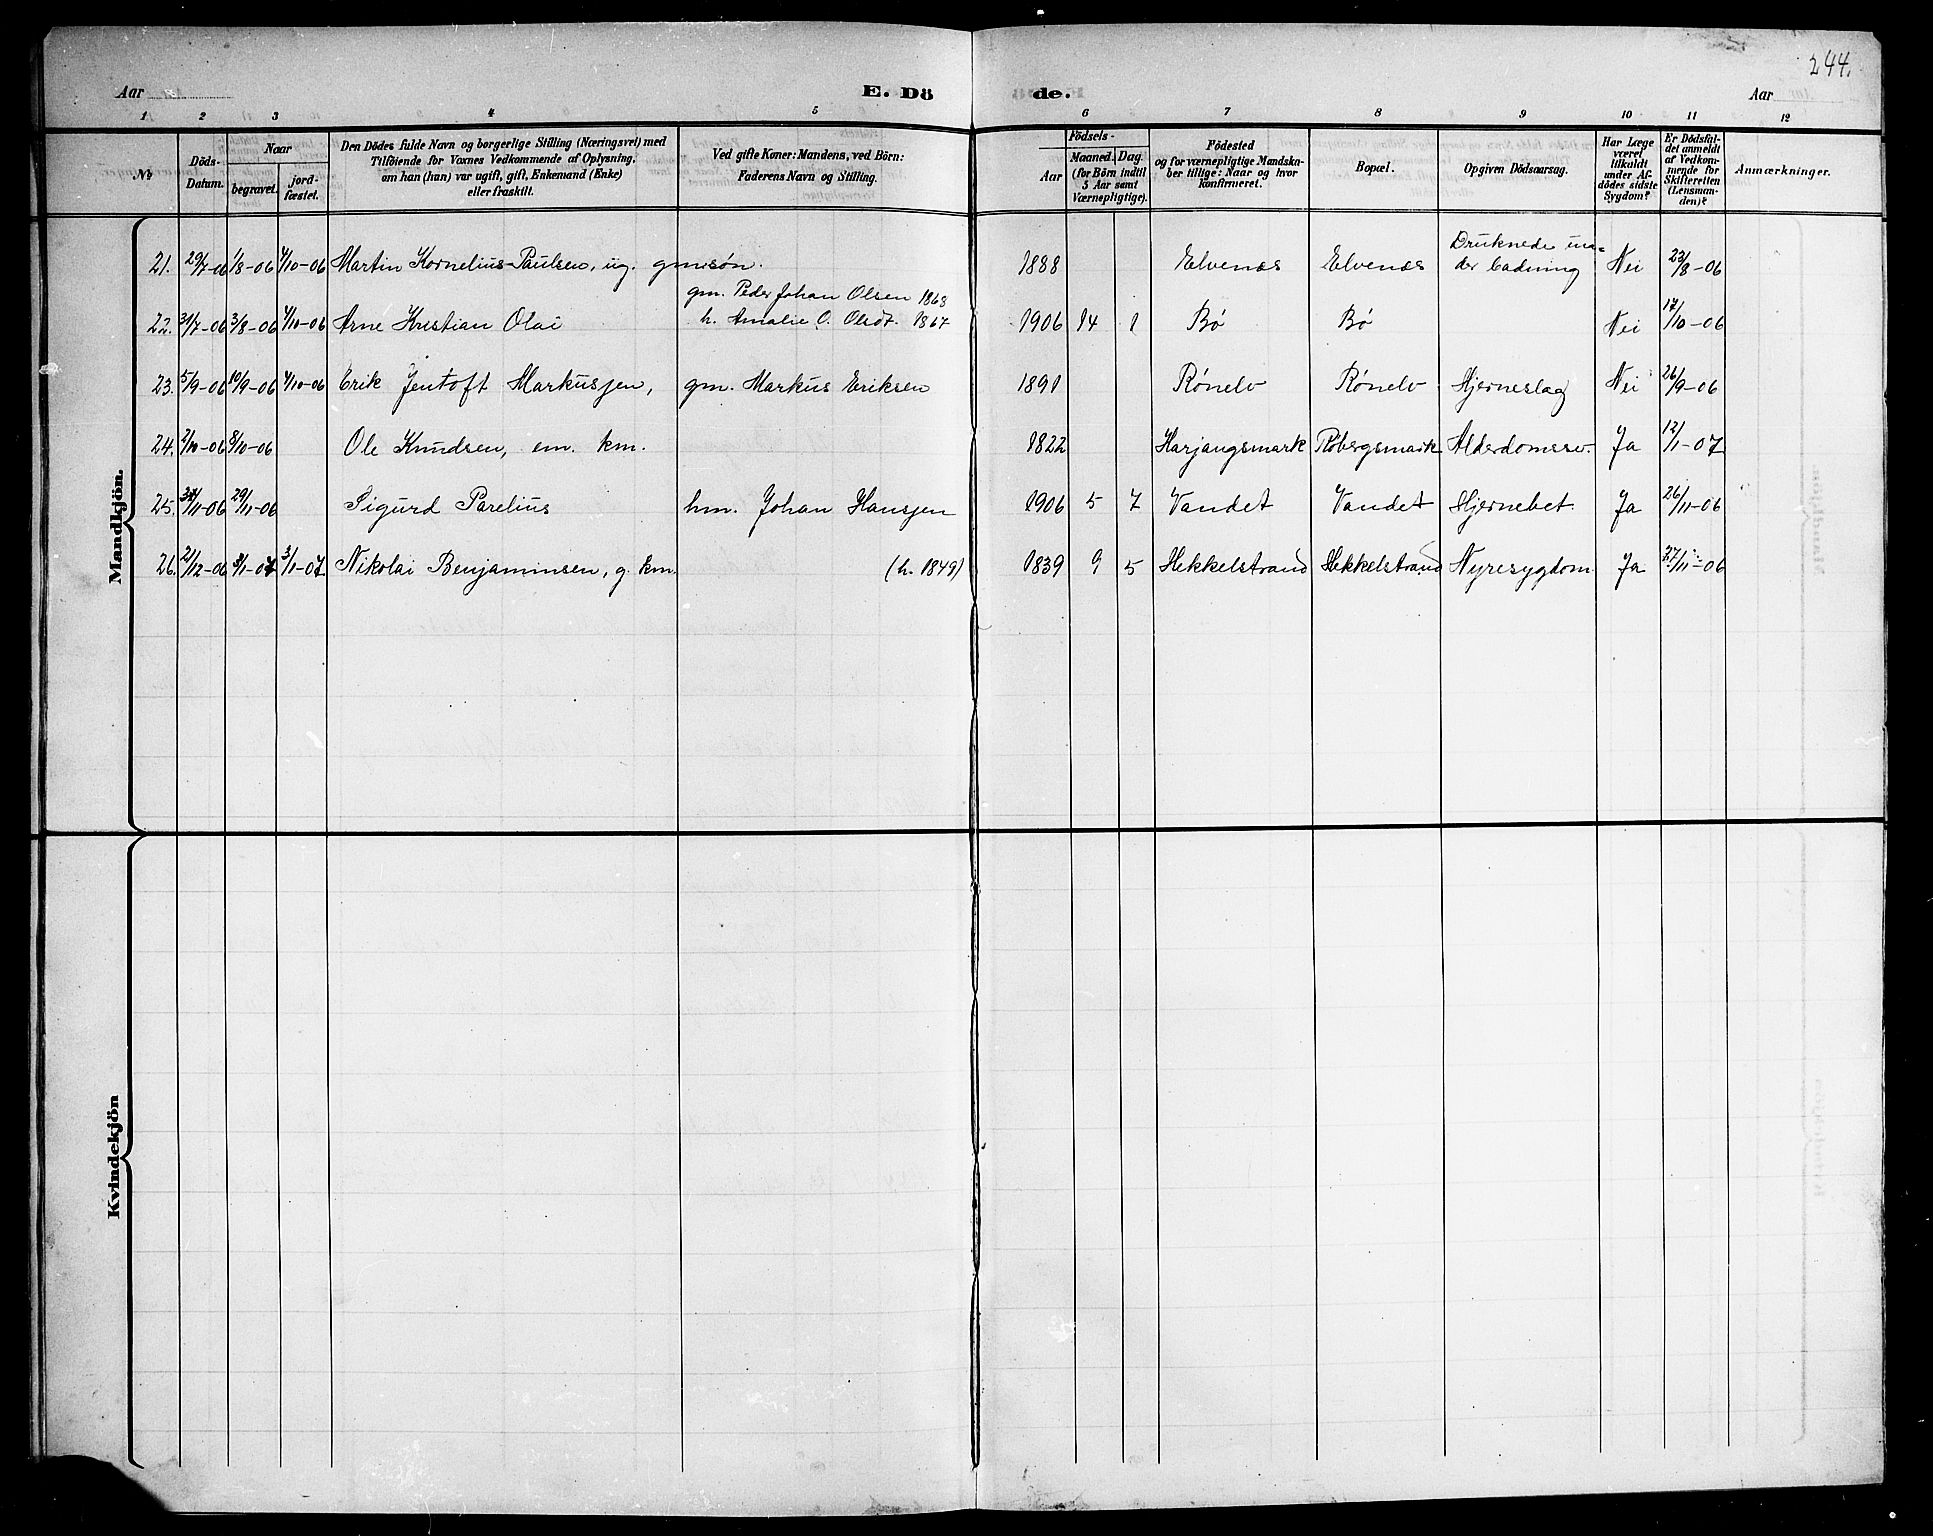 244.
Aar
E. Dö
de.
Aar
1 2 3 4 5 6 7 8 9 10 11 12
No
Döds-Datum.
Naar
begravet.
jord-fæstet.
Den Dödes fulde Navn og borgerlige Stilling (Næringsvei) med
Tilföiende for Voxnes Vedkommende af Oplysning,
om han (hun) var ugift, gift, Enkemand (Enke)
eller fraskilt.
Ved gifte Koner: Mandens, ved Börn:
Faderens Navn og Stilling.
Födsels-
Aar
Maaned. Dag.
(for Börn indtil
5 Aar samt
Værnepligtige).
Födested
og for værnepligtige Mandskaber tillige: Naar og hvor
konfirmeret.
Bopæl.
Opgiven Dödsaarsag.
Har Læge
været
tilkaldt
under Afdödes sidste
Sygdom?
Er Dödsfaldet anmeldt
af Vedkommende for
Skifteretten
(Lensmanden)?
Anmærkninger.
Mandkjön.
21. 29/7-06 1/8-06 7/10-06 Martin Kornelius Paulsen, ug. gmsøn. 1888 Elvenæs Elvenæs Druknede under badning Nei 23/8-06
gm. Peder Johan Olsen 1868
22. 31/7-06 3/8-06 7/10-06 Arne Kristian Olai h. Amalie O. Olsdt. 1867 1906 14 1 Bø Bø Nei 17/10-06
23. 5/9-06 10/9-06 7/10-06 Erik Jentoft Markussen, gm. Markus Eriksen 1891 Rønelv Rønelv Hjerneslag Nei 26/9-06
24. 2/10-06 8/10-06 Ole Knudsen, em. km. 1822 Harjangsmark Robergsmark Alderdomssv. Ja 12/1-07
25. /11-06 29/11-06 Sigurd Parelius hm. Johan Hansen 1906 5 7 Vandet Vandet Hjernebet. Ja 26/11-06
26. 21/12-06 3/1-07 3/1-07 Nikolai Benjaminsen, g. km. (h. 1849) 1839 9 5 Hekkelstrand Hekkelstrand Nyresygdom Ja 27/11-06
Kvindekjön